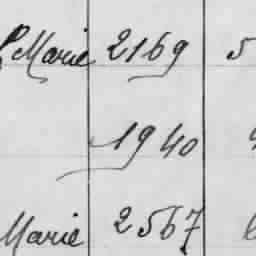 Marie 2169 5
1940
Marie 2567